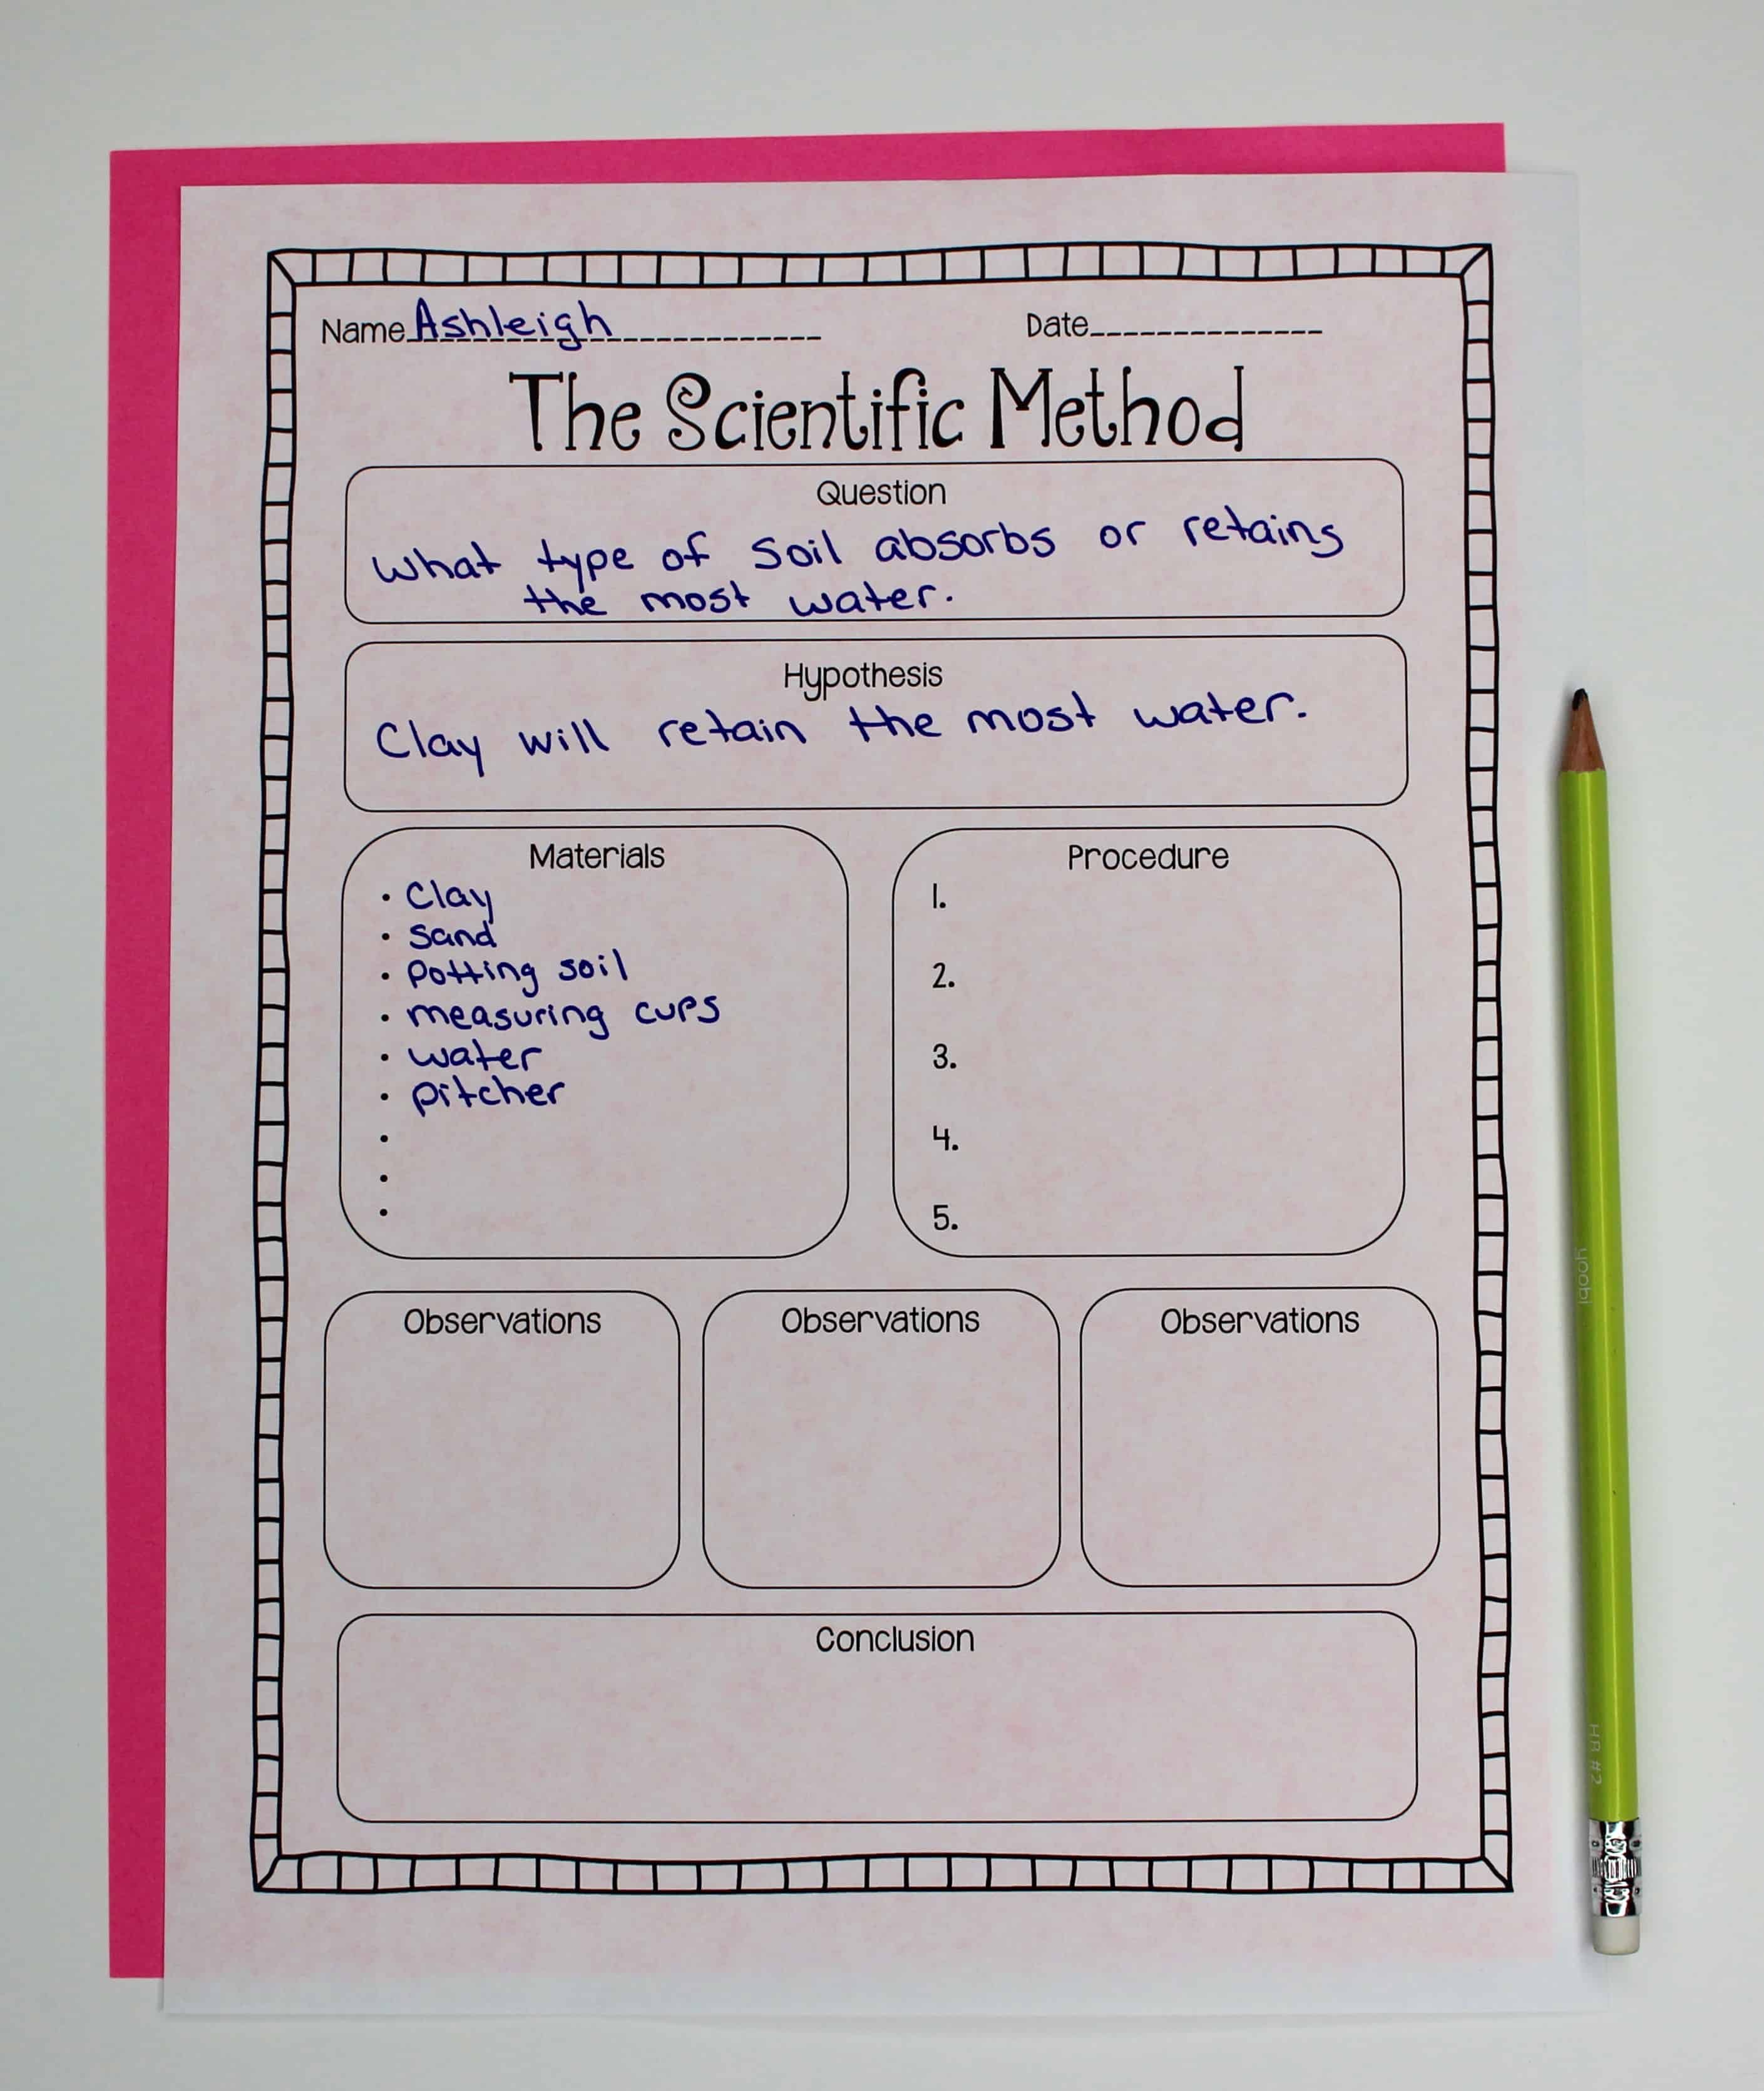 Name Ashleigh Date
The Scientific Method
Question
What type of soil absorbs or retains
the most water.
Hypothesis
Clay will retain the most water.
Materials
• Clay
• sand
• potting soil
• measuring cups
• water
• pitcher
•
•
•
Procedure
1.
2.
3.
4.
5.
Observations
Observations
Observations
Conclusion
yoobi
HB #2